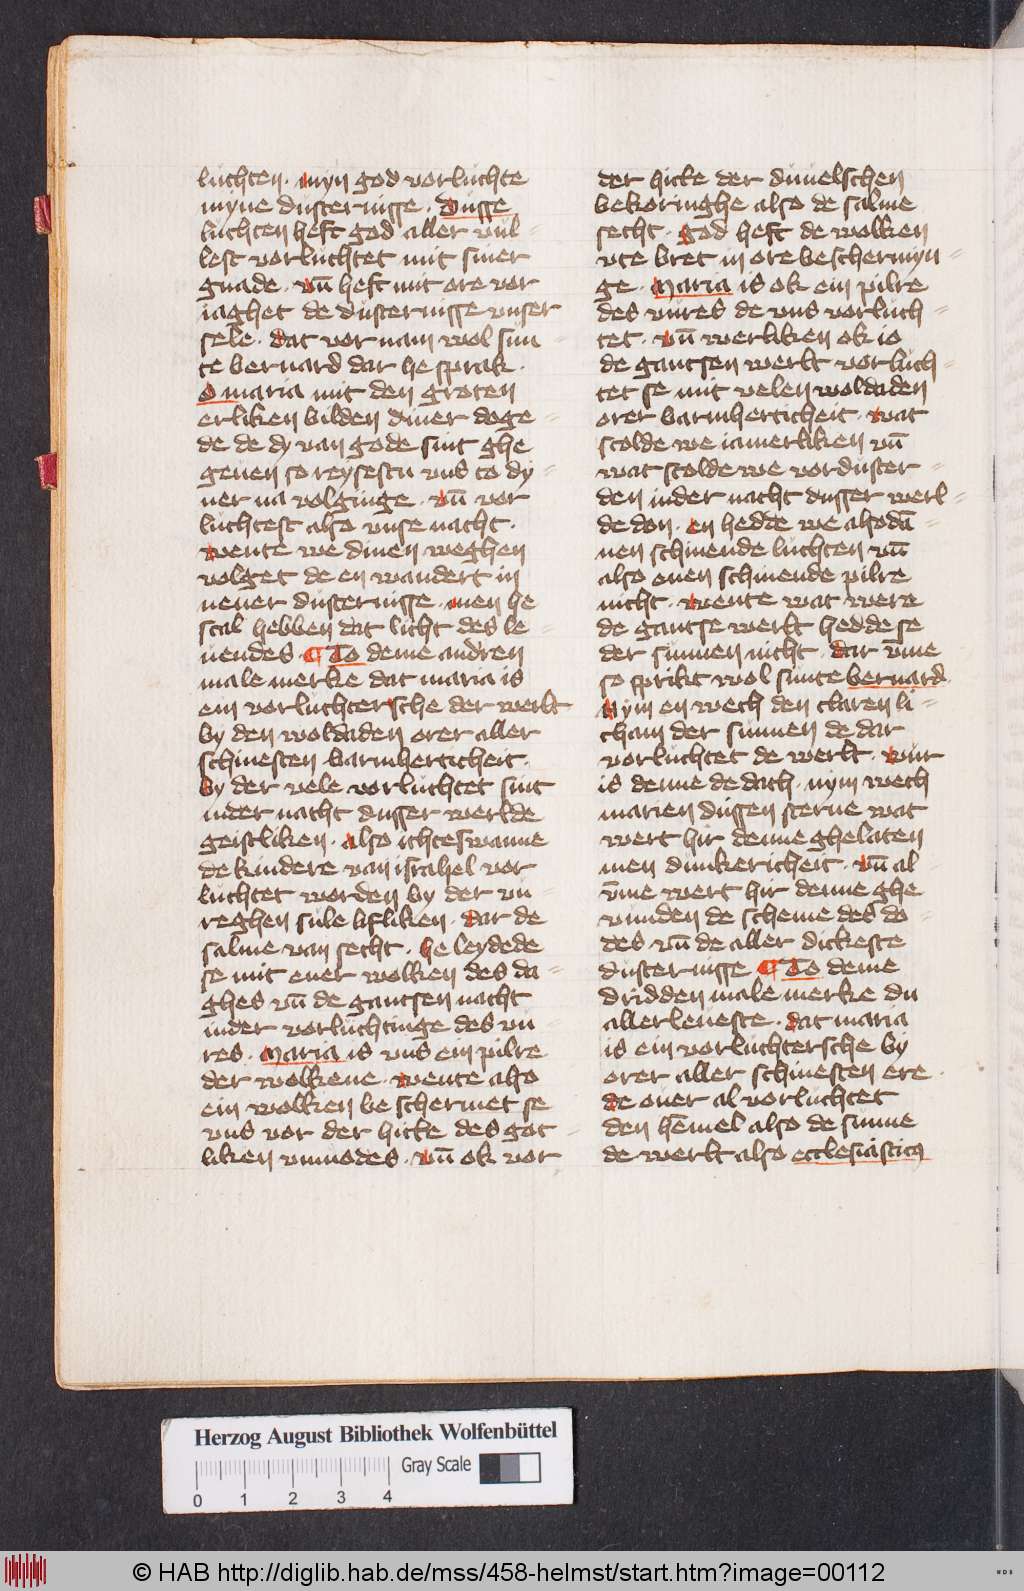 luchten. myn god vorluchte
myne dusternisse. Dusse
luchten heft god aller vul-
lest vorluchtet mit siner
gnade. vn̄ heft mit ore vor
iaghet de dusternisse vnser
sele. dat vornam wol sun
te bernard dar he sprak.
O maria mit den groten
erliken bilden diner doge-
de de dy van gode sint ghe
geuen so reysestu vns to dy-
ner na volginge. vn̄ vor
luchtest also vnse nacht.
wente we dinen weghen
volget de en wandert in
nener dusternisse. men he
scal hebben dat licht des le-
uendes. ¶ To deme andren
male merke dat maria is
ein vorluchtersche der werlt
by den woldaden orer aller
schinesten barmherticheit.
by der vele vorluchtet sint
inder nacht dusser werlde
geistliken. also ichteswanne
de kindere van israhel vor
luchtet worden by der vu-
reghen sule lifliken. dar de
salme van secht. he leydede
se mit ener wolken des da-
ghes vn̄ de gantsen nacht
inder vorluchtinge des vu
res. Maria is vns ein pilre
der wolkene. wente also
ein wolken be schermet se
vns vor der hitte des got-
liken vnmodes. vn̄ ok vor
der hitte der duuelschen
bekoringhe also de salme
secht. god heft de wolken
vte bret in ore beschermyn-
ge. Maria is ok ein pilre
des vures de vns vorluch-
tet. vn̄ werliken ok io
de gantsen werlt vorluch-
tet se mit velen woldaden
orer barmherticheit. wat
scolde we iamerliken vn̄
wat scolde we vorduster-
den inder nacht dusser werl-
de don. en hedde we alsodā-
nen schinende luchten vn̄
also enen schinende pilre
nicht. wente wat were
de gantse werlt hedde se
der sunnen nicht. dar v̄me
so sprikt wol sunte bernard.
Nym en wech den claren li-
cham der sunnen de dar
vorluchtet de werlt. wur
is denne de dach. nym wech
marien dussen sterne wat
wert hir denne ghelaten
men dunkericheit. vn̄ al
v̄me wert hir denne ghe
vunden de scheme des do-
des vn̄ de aller dickeste
dusternisse ¶ To deme
dridden male merke du
allerleueste. dat maria
is ein vorluchtersche by
orer aller schinesten ere.
de ouer al vorluchtet
den hēmel also de sunne
de werlt also ecclesiasticꝯ
Herzog August Bibliothek Wolfenbüttel
Gray Scale
0 1 2 3 4
© HAB http://diglib.hab.de/mss/458-helmst/start.htm?image=00112